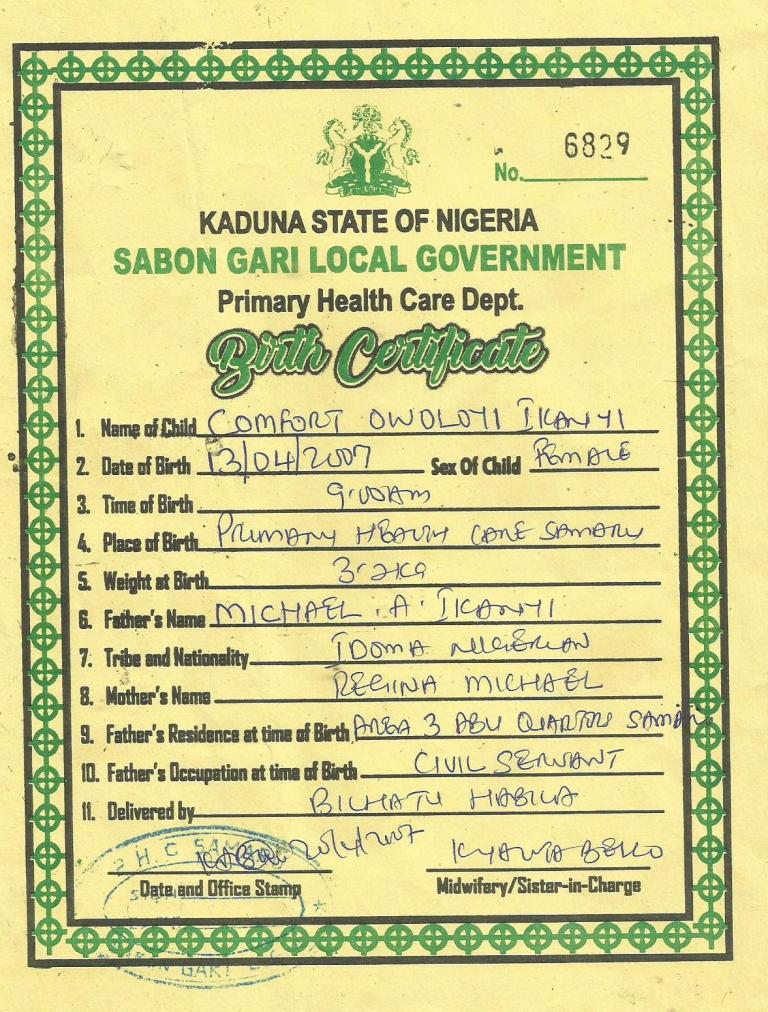 6829
No.
KADUNA STATE OF NIGERIA
SABON GARI LOCAL GOVERNMENT
Primary Health Care Dept.
Birth Certificate
1. Name of Child COMFORT OWOLOYI IKANYI
2. Date of Birth 13/04/2007 Sex Of Child FEMALE
3. Time of Birth 9:00AM
4. Place of Birth PRIMARY HEALTH CARE SAMARU
5. Weight at Birth 3.2KG
6. Father's Name MICHAEL .A. IKANYI
7. Tribe and Nationality IDOMA NIGERIAN
8. Mother's Name REGINA MICHAEL
9. Father's Residence at time of Birth AREA 3 ABU QUARTERS SAMARU
10. Father's Occupation at time of Birth CIVIL SERVANT
11. Delivered by BILHATU HABILA
20/4/2007 BELLO
Date and Office Stamp Midwifery/Sister-in-Charge
P H C SAMARU
GARI